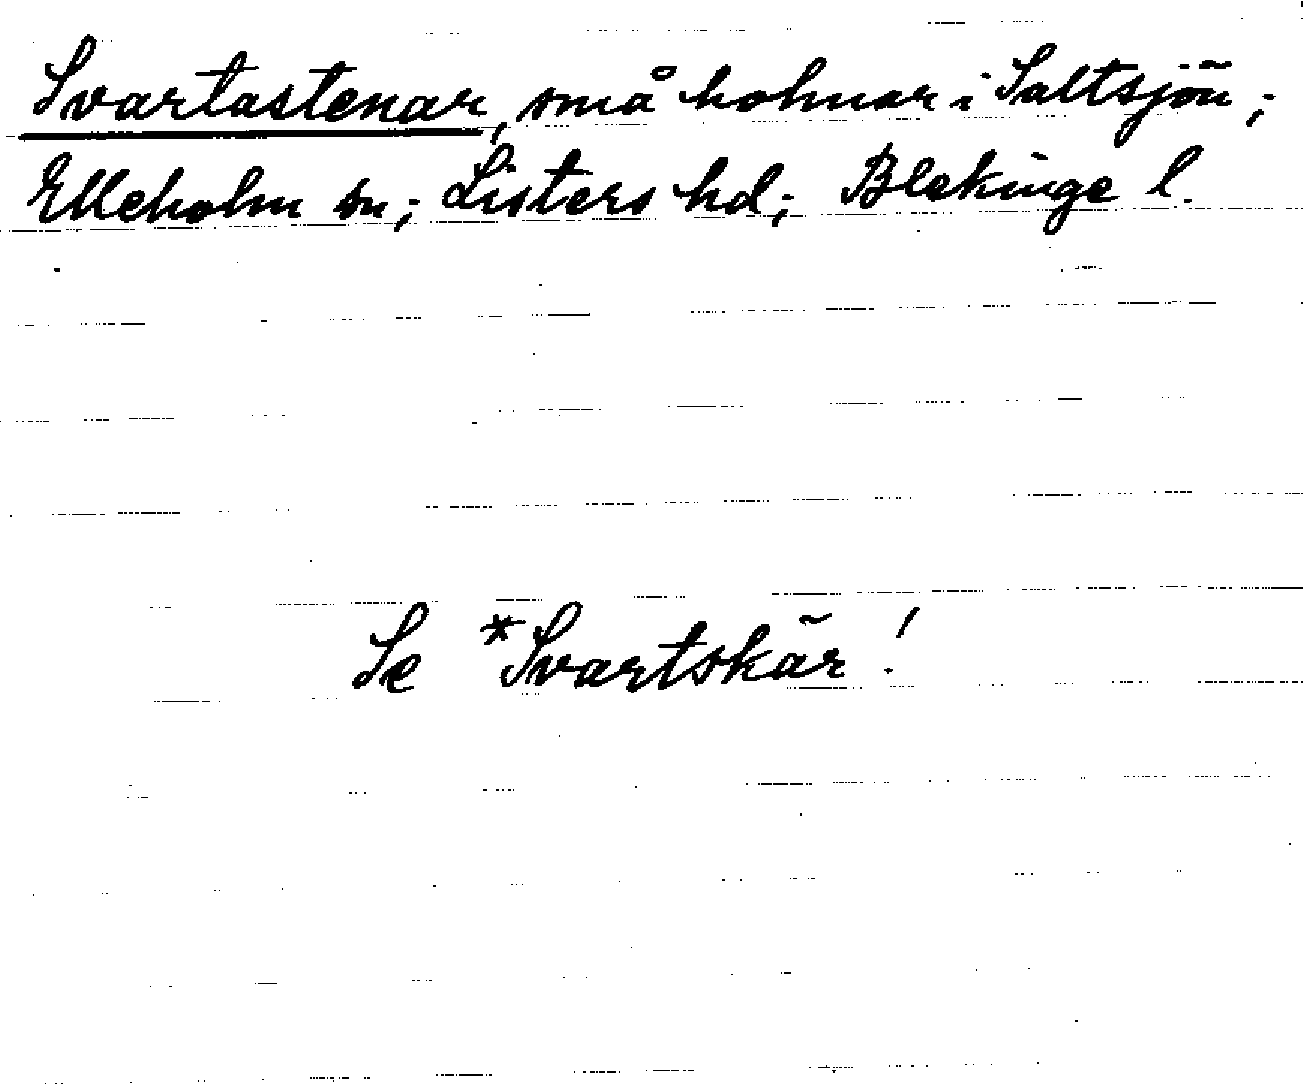 Svartastenar, små holmar i Saltsjön;
Elleholm sn; Listers hd; Blekinge l.
Se *Svartskär!